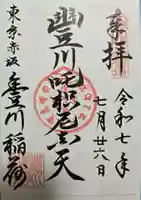 奉拝
令和七年
七月廿六日
豊川吒枳尼真天
東京赤坂
豊川稲荷